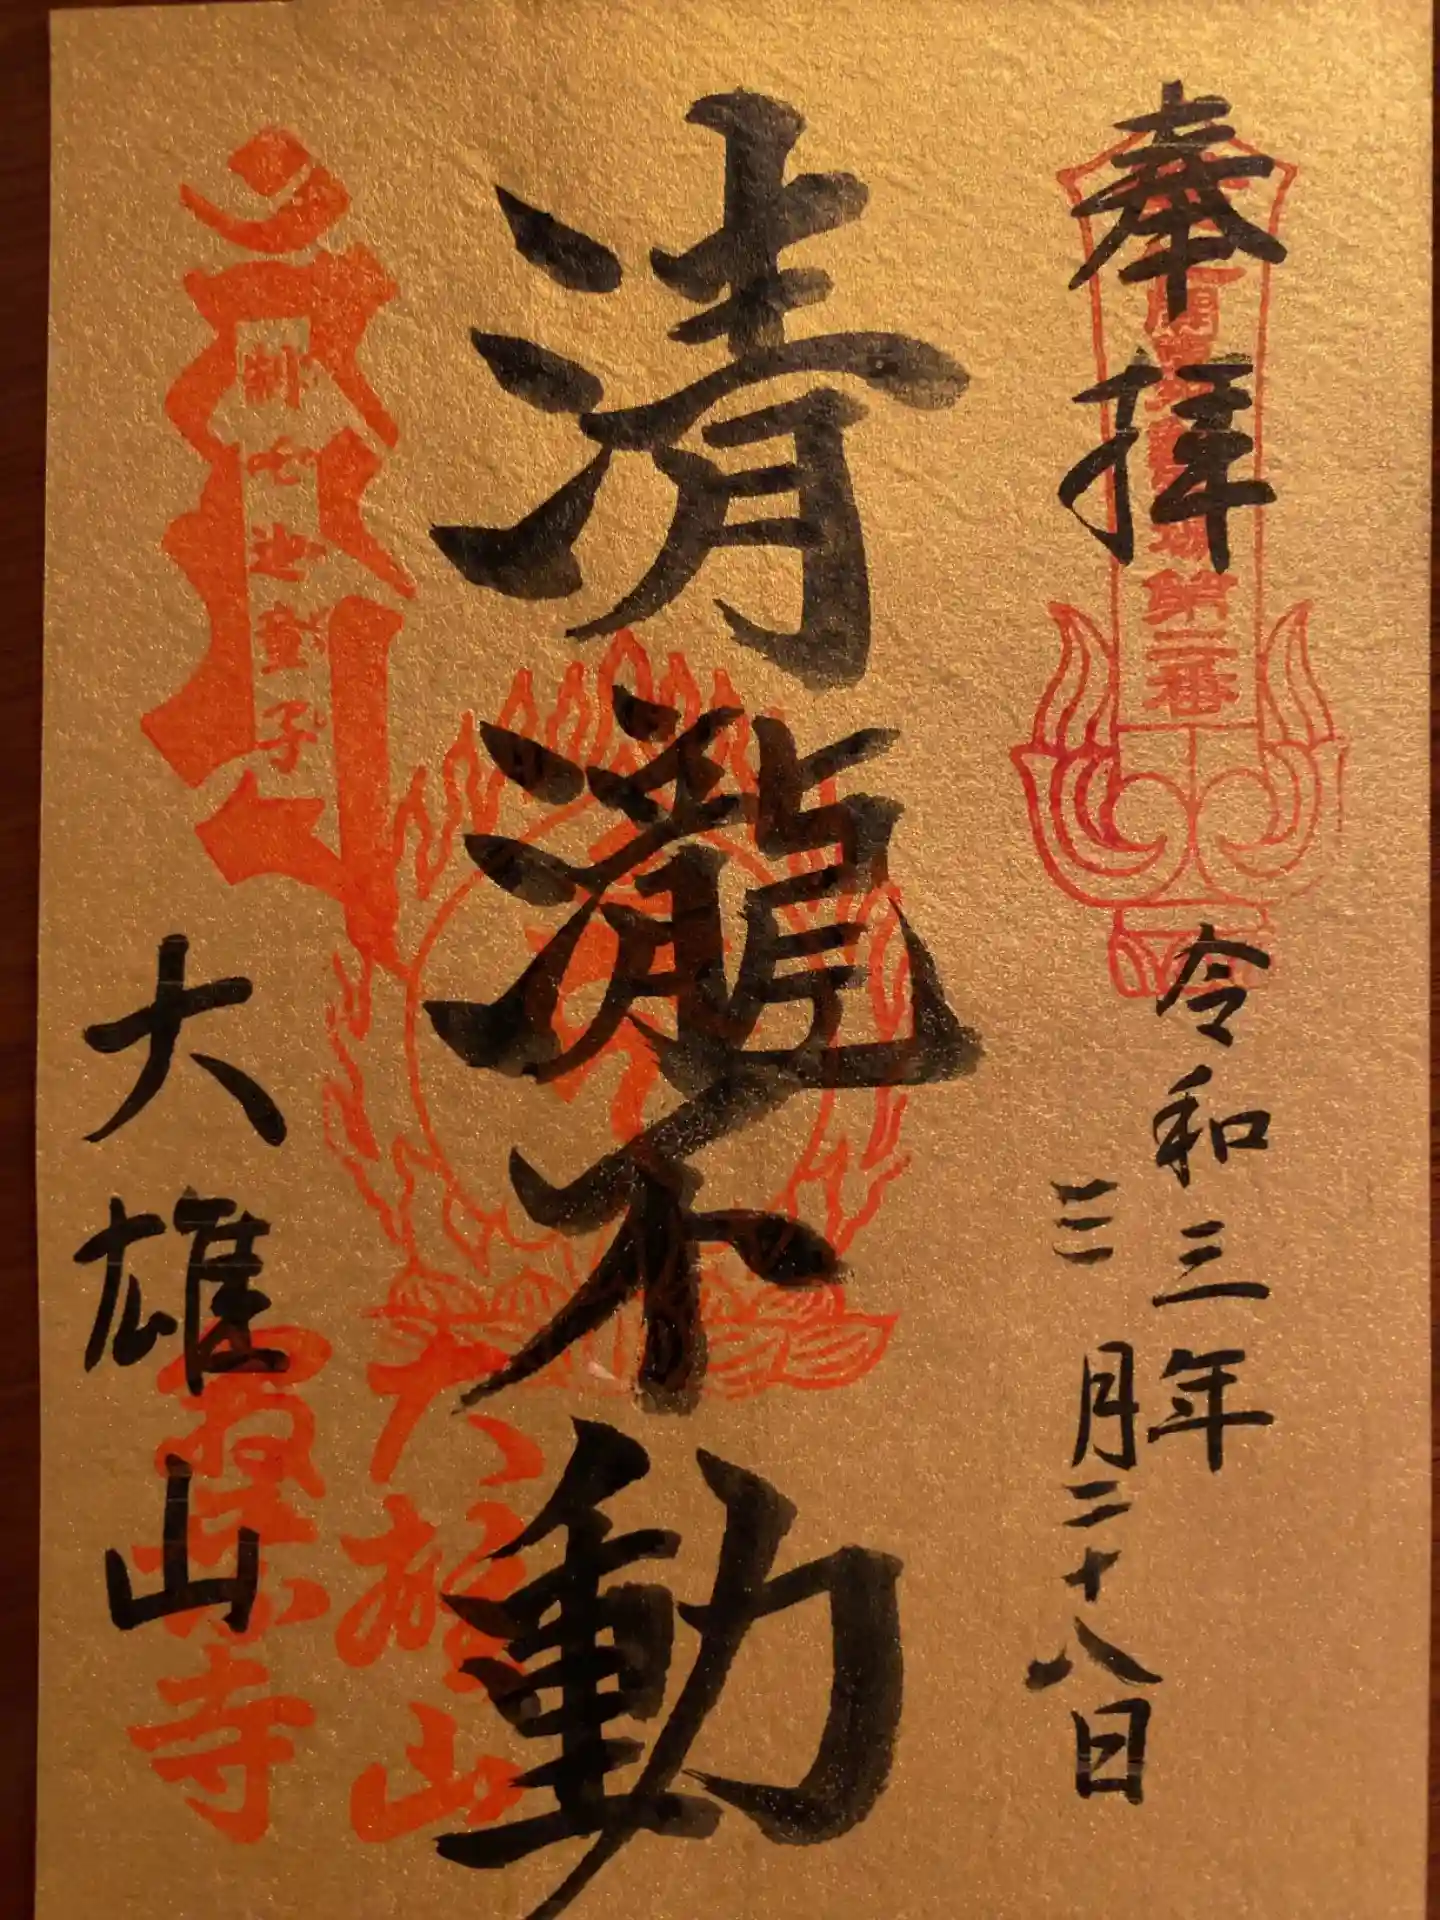 奉拝
第二番
令和三年
三月二十八日
清瀧不動
制吒迦童子
大雄山
大雄山
最乗寺